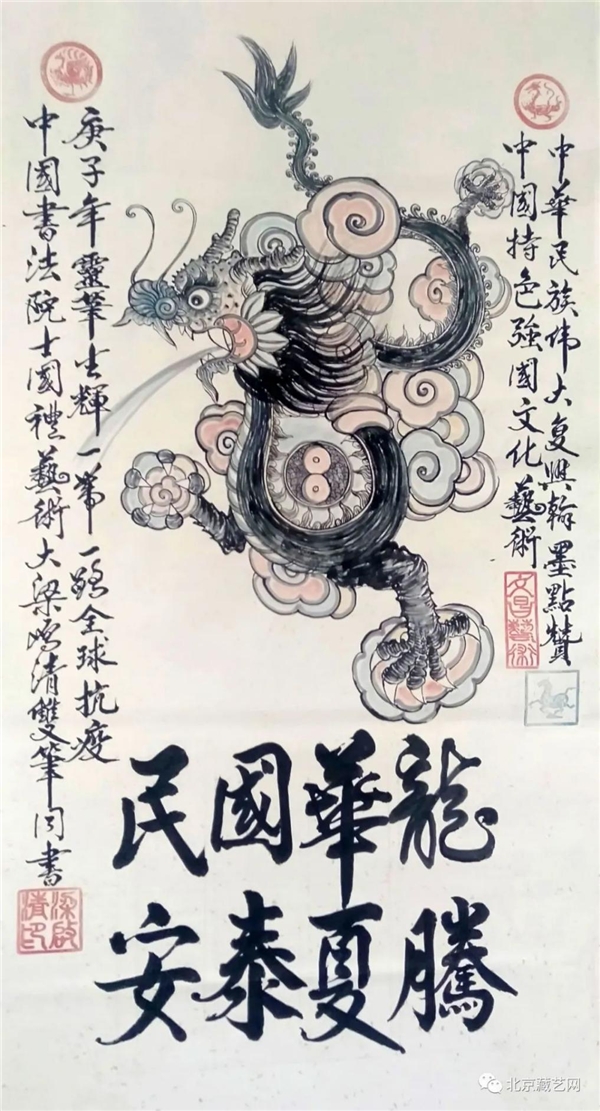 中華民族伟大复興翰墨點贊
中國特色強國文化藝術
文昌藝術
龍騰
華夏
國泰
民安
庚子年靈筆生輝一帶一路全球抗疫
中國書法院士國禮藝術大梁清雙筆同書
梁啟清印
北京藏艺网